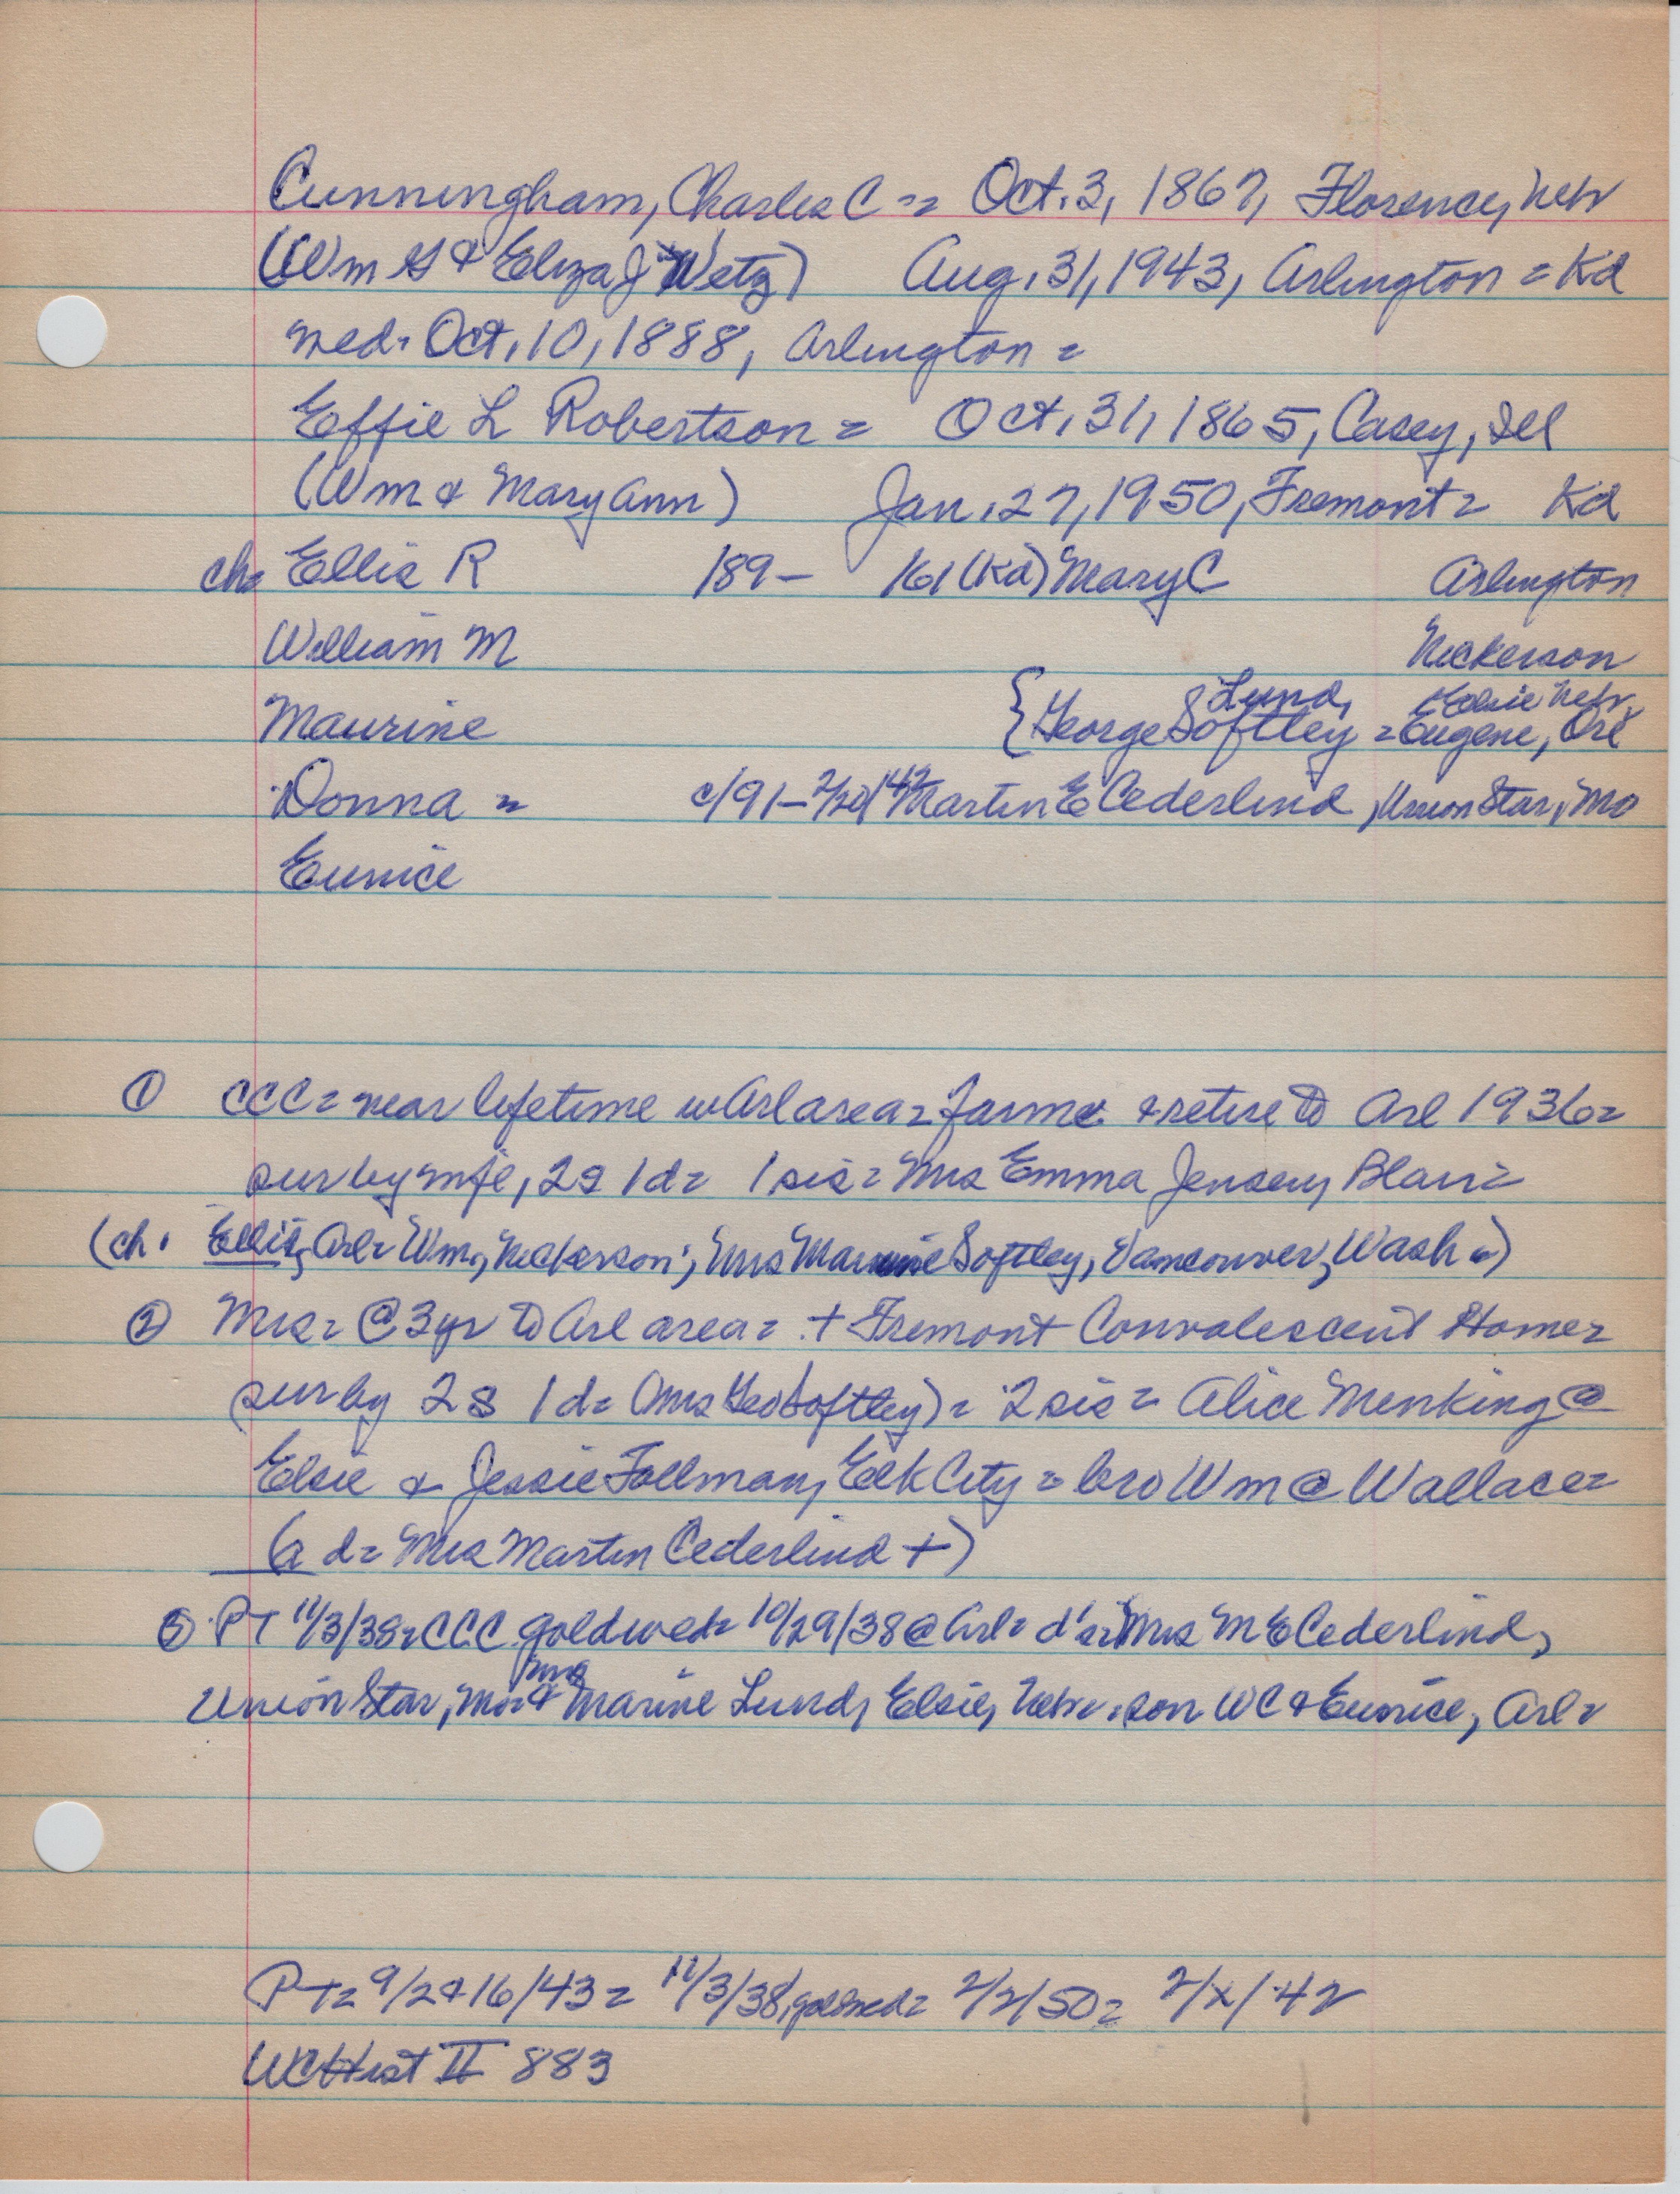 Cunningham, Charles C = Oct. 3, 1867, Florence, Nebr
(Wm G & Eliza J Wetz) Aug. 31, 1943, Arlington = Kd
wed. Oct. 10, 1888, Arlington =
Effie L Robertson = Oct. 31, 1865, Casey, Ill
(Wm & Mary Ann) Jan. 27, 1950, Fremont = Kd
ch= Ellis R 189- 161 (Kd) Mary C Arlington
William M Nickerson
Lund, Elsie Nebr.
Maurine { George Softley = Eugene, Ore
Donna = c/91- 2/20/42 Martin E Cederlind, Union Star, Mo
Eunice
① CCC = near lifetime in Arl area = farmer & retire to Arl 1936 =
sur by wife, 2s 1d = 1 sis = Mrs Emma Jensen, Blair =
(ch. Ellis, Arl = Wm, Nickerson; Mrs Maurine Softley, Vancouver, Wash.)
② Mrs = @ 3yr to Arl area = + Fremont Convalescent Home =
sur by 2s 1d = (Mrs Geo Softley) = 2 sis = Alice Menking @
Elsie & Jessie Follman, Elk City = bro Wm @ Wallace =
(a d = Mrs Martin Cederlind +)
③ PT 11/3/38 = CCC gold wed = 10/29/38 @ Arl = d's = Mrs M E Cederlind,
Mrs
Union Star, Mo = & Marine Lund, Elsie, Nebr. son WC & Eunice, Arl =
PT = 9/2 & 16/43 = 11/3/38, gold wed = 2/2/50 = 2/x/42
WC Hist II 883